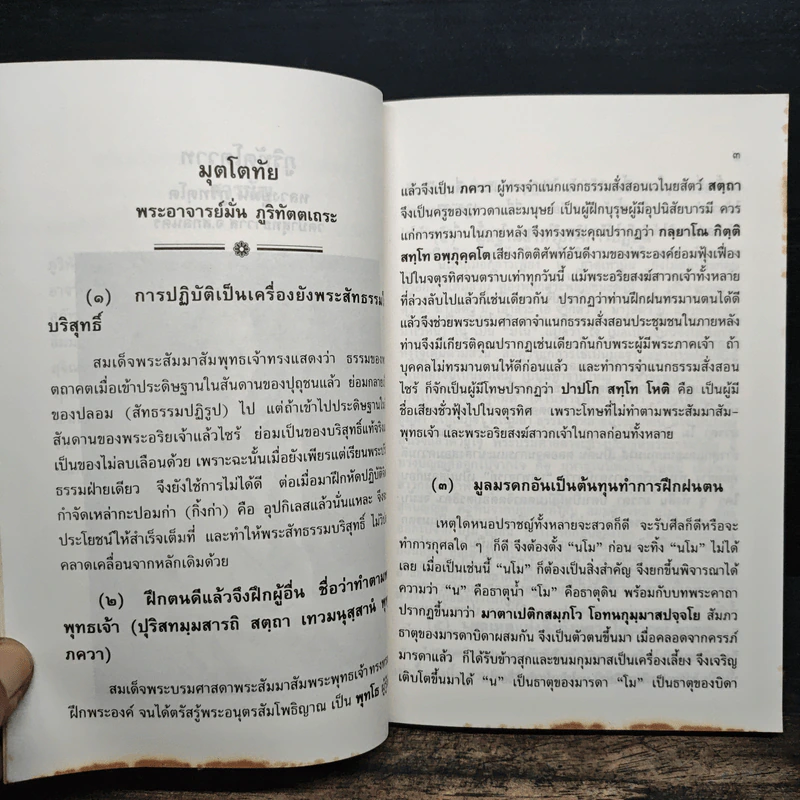 มุตโตทัย
พระอาจารย์มั่น ภูริทัตตเถระ
(๑) การปฏิบัติเป็นเครื่องยังพระสัทธรรมให้
บริสุทธิ์
สมเด็จพระสัมมาสัมพุทธเจ้าทรงแสดงว่า ธรรมของ
ตถาคตเมื่อเข้าประดิษฐานในสันดานของปุถุชนแล้ว ย่อมกลาย
ของปลอม (สัทธรรมปฏิรูป) ไป แต่ถ้าเข้าไปประดิษฐานใน
สันดานของพระอริยเจ้าแล้วไซร้ ย่อมเป็นของบริสุทธิ์แท้จริง
เป็นของไม่ลบเลือนด้วย เพราะฉะนั้นเมื่อยังเพียรแต่เรียนพระ
ธรรมฝ่ายเดียว จึงยังใช้การไม่ได้ดี ต่อเมื่อมาฝึกหัดปฏิบัติ
กำจัดเหล่ากะปอมก่า (กิ้งก่า) คือ อุปกิเลสแล้วนั่นแหละ จึง
ประโยชน์ให้สำเร็จเต็มที่ และทำให้พระสัทธรรมบริสุทธิ์
คลาดเคลื่อนจากหลักเดิมด้วย
(๒) ฝึกตนดีแล้วจึงฝึกผู้อื่น ชื่อว่าทำตาม
พุทธเจ้า (ปุริสทมฺมสารถิ สตฺถา เทวมนุสฺสานํ
ภควา)
สมเด็จพระบรมศาสดาพระสัมมาสัมพระพุทธเจ้า
ฝึกพระองค์ จนได้ตรัสรู้พระอนุตรสัมโพธิญาณ เป็น พุทฺโธ
๓
แล้วจึงเป็น ภควา ผู้ทรงจำแนกแจกธรรมสั่งสอนเวไนยสัตว์ สตฺถา
จึงเป็นครูของเทวดาและมนุษย์ เป็นผู้ฝึกบุรุษผู้มีอุปนิสัยบารมี ควร
แก่การทรมานในภายหลัง จึงทรงพระคุณปรากฏว่า กลฺยาโณ กิตฺติ
สทฺโท อพฺภุคฺคโต เสียงกิตติศัพท์อันดีงามของพระองค์ย่อมฟุ้งเฟื่อง
ไปในจตุรทิศจนตราบเท่าทุกวันนี้ แม้พระอริยสงฆ์สาวกเจ้าทั้งหลาย
ที่ล่วงลับไปแล้วก็เช่นเดียวกัน ปรากฏว่าท่านฝึกฝนทรมานตนได้ดี
แล้วจึงช่วยพระบรมศาสดาจำแนกธรรมสั่งสอนประชุมชนในภายหลัง
ท่านจึงมีเกียรติคุณปรากฏเช่นเดียวกันกับพระผู้มีพระภาคเจ้า ถ้า
บุคคลไม่ทรมานตนให้ดีก่อนแล้ว และทำการจำแนกธรรมสั่งสอน
ไซร้ ก็จักเป็นผู้มีโทษปรากฏว่า ปาปโก สทฺโท โหติ คือ เป็นผู้มี
ชื่อเสียงชั่วฟุ้งไปในจตุรทิศ เพราะโทษที่ไม่ทำตามพระสัมมาสัม-
พุทธเจ้า และพระอริยสงฆ์สาวกเจ้าในกาลก่อนทั้งหลาย
(๓) มูลมรดกอันเป็นต้นทุนทำการฝึกฝนตน
เหตุใดหนอปราชญ์ทั้งหลายจะสวดก็ดี จะรับศีลก็ดีหรือจะ
ทำการกุศลใด ๆ ก็ดี จึงต้องตั้ง “นโม” ก่อน จะทิ้ง “นโม” ไม่ได้
เลย เมื่อเป็นเช่นนี้ “นโม” ก็ต้องเป็นสิ่งสำคัญ จึงยกขึ้นพิจารณาได้
ความว่า “น” คือธาตุน้ำ “โม” คือธาตุดิน พร้อมกับบทพระคาถา
ปรากฏขึ้นมาว่า มาตาเปติกสมฺภโว โอทนกุมฺมาสปจฺจโย สัมภว
ธาตุของมารดาบิดาผสมกัน จึงเป็นตัวตนขึ้นมา เมื่อคลอดจากครรภ์
มารดาแล้ว ก็ได้รับข้าวสุกและขนมกุมมาสเป็นเครื่องเลี้ยง จึงเจริญ
เติบโตขึ้นมาได้ “น” เป็นธาตุของมารดา “โม” เป็นธาตุของบิดา